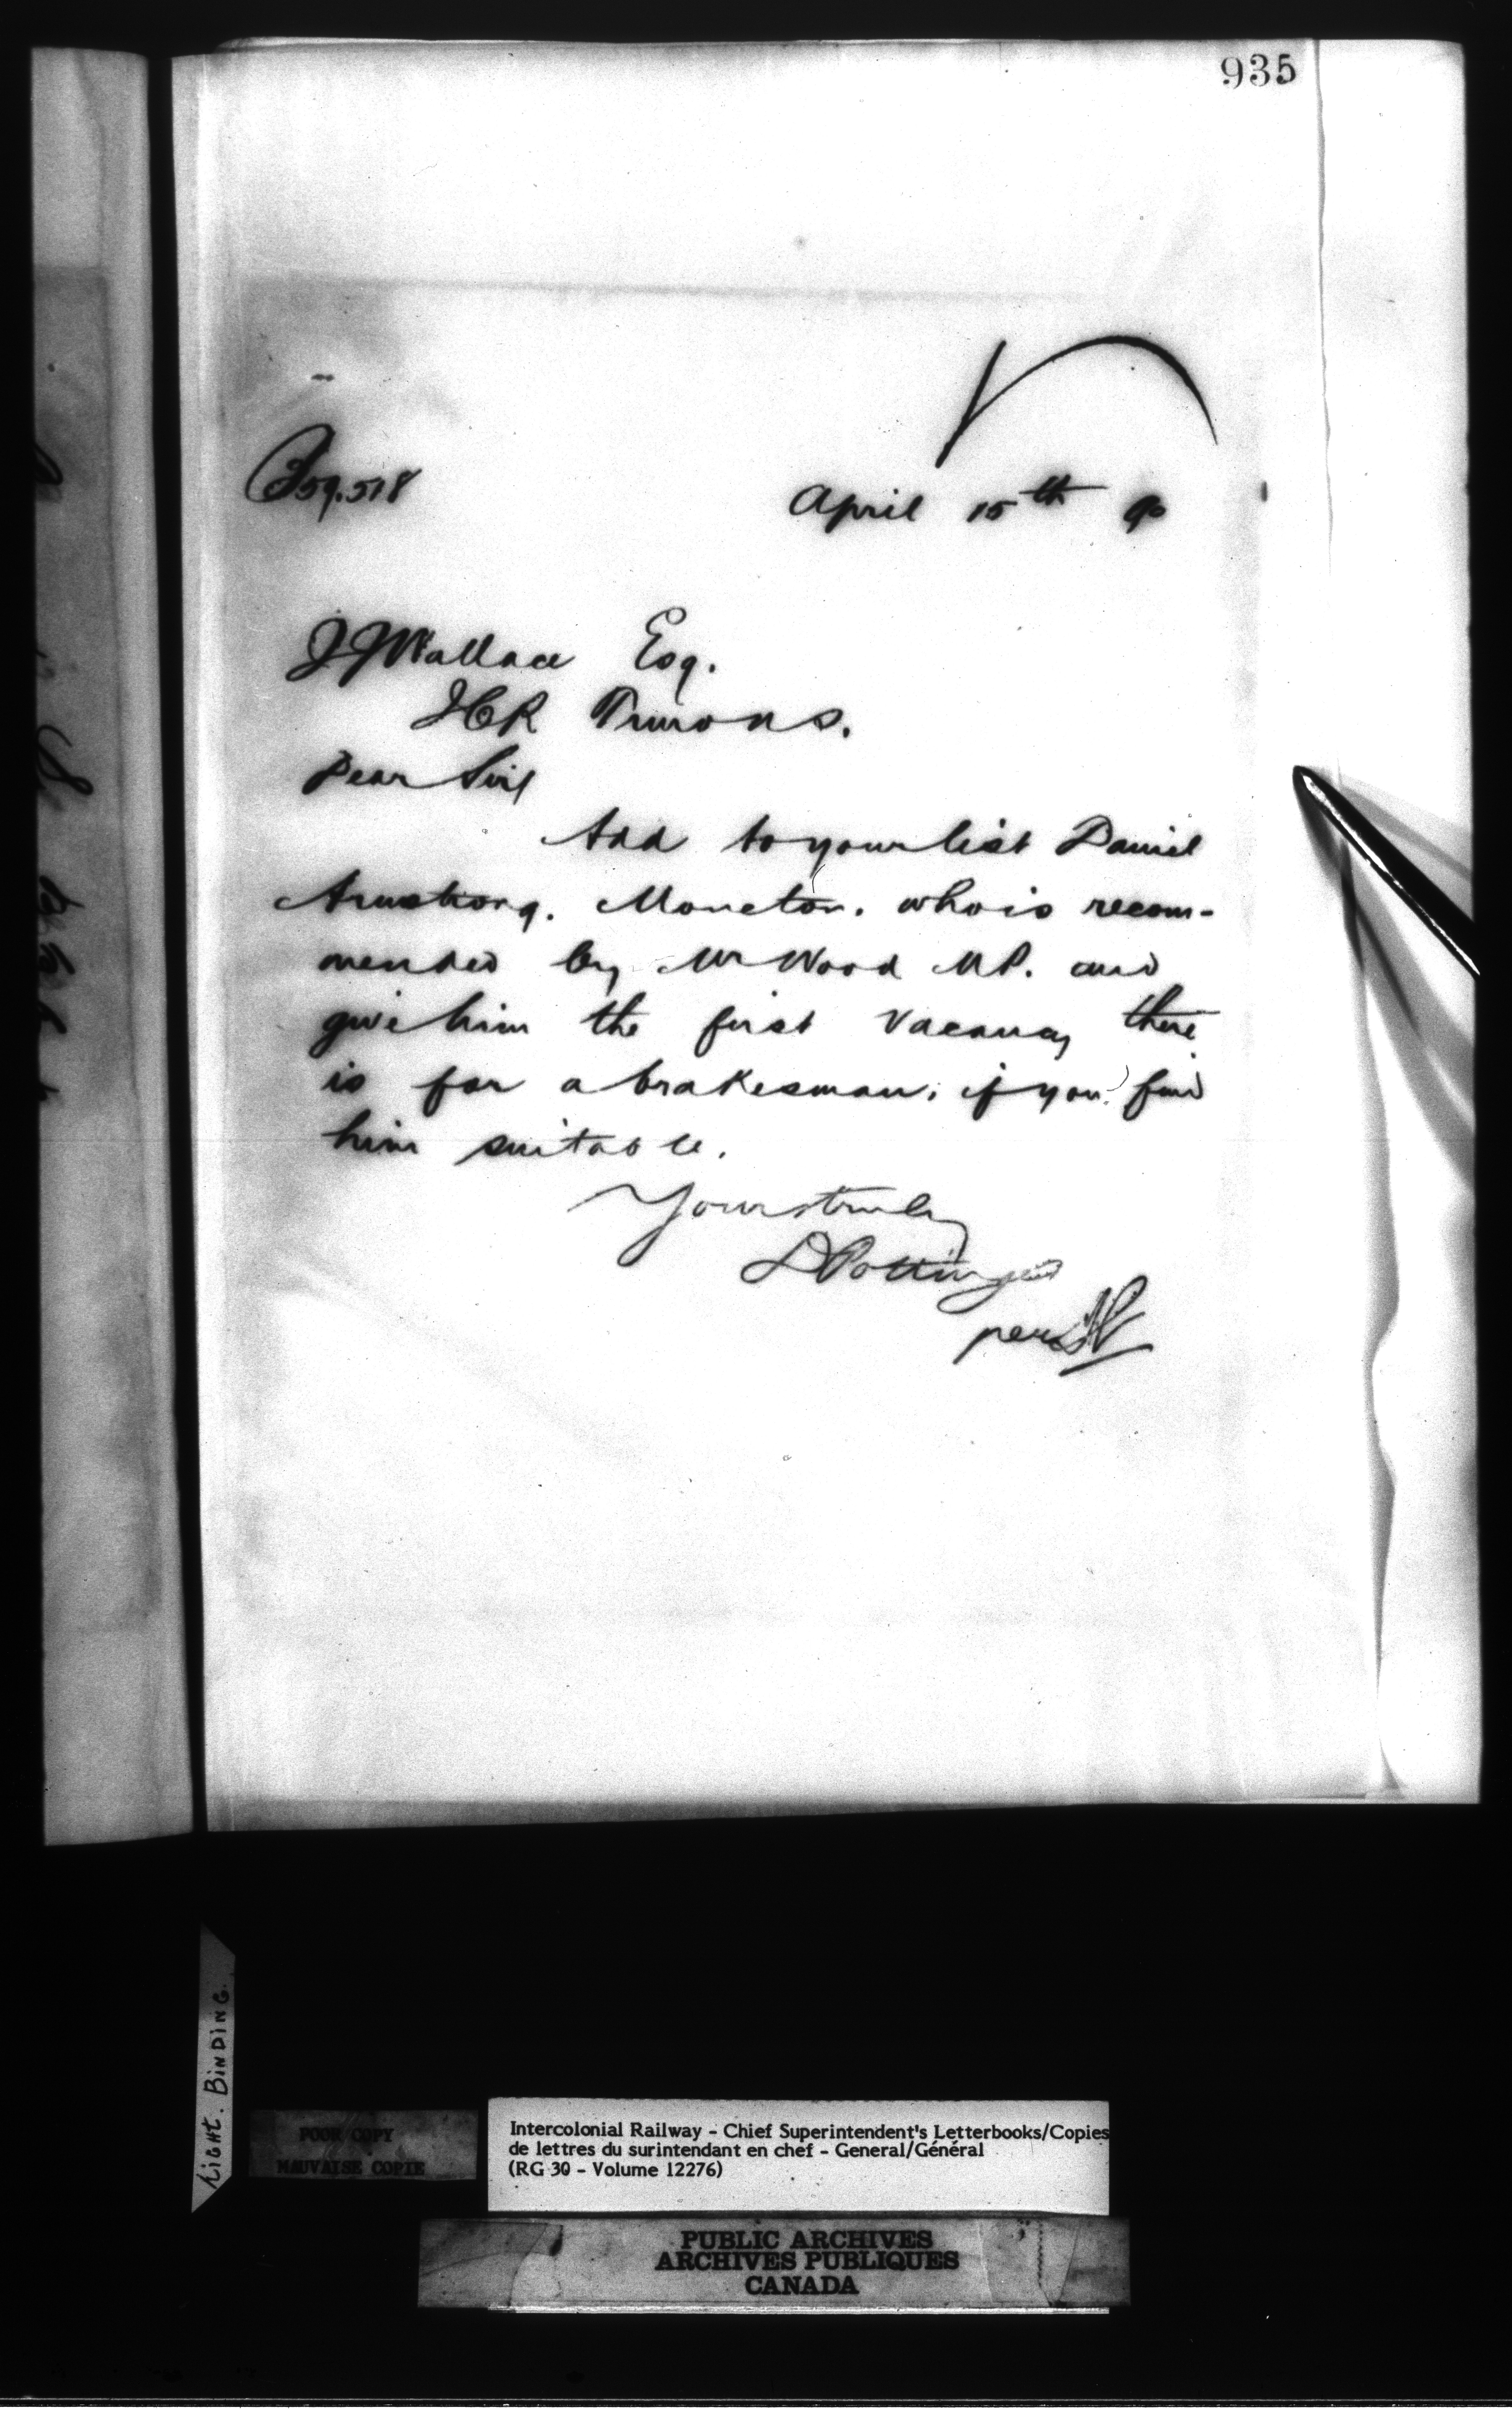 935
59.518
April 15th 90
J J Wallace Esq.
ICR
Dear Sir/
Add to your list Daniel
Armstrong. Moncton. who is recom-
mended by Mr Wood MP. and
give him the first vacancy there
is for a brakesman, if you find
him suitable.
Yours truly
D Pottinger
per
Light. BINDING.
POOR COPY
MAUVAISE COPIE
Intercolonial Railway - Chief Superintendent's Letterbooks/Copies
de lettres du surintendant en chef - General/Général
(RG 30 - Volume 12276)
PUBLIC ARCHIVES
ARCHIVES PUBLIQUES
CANADA